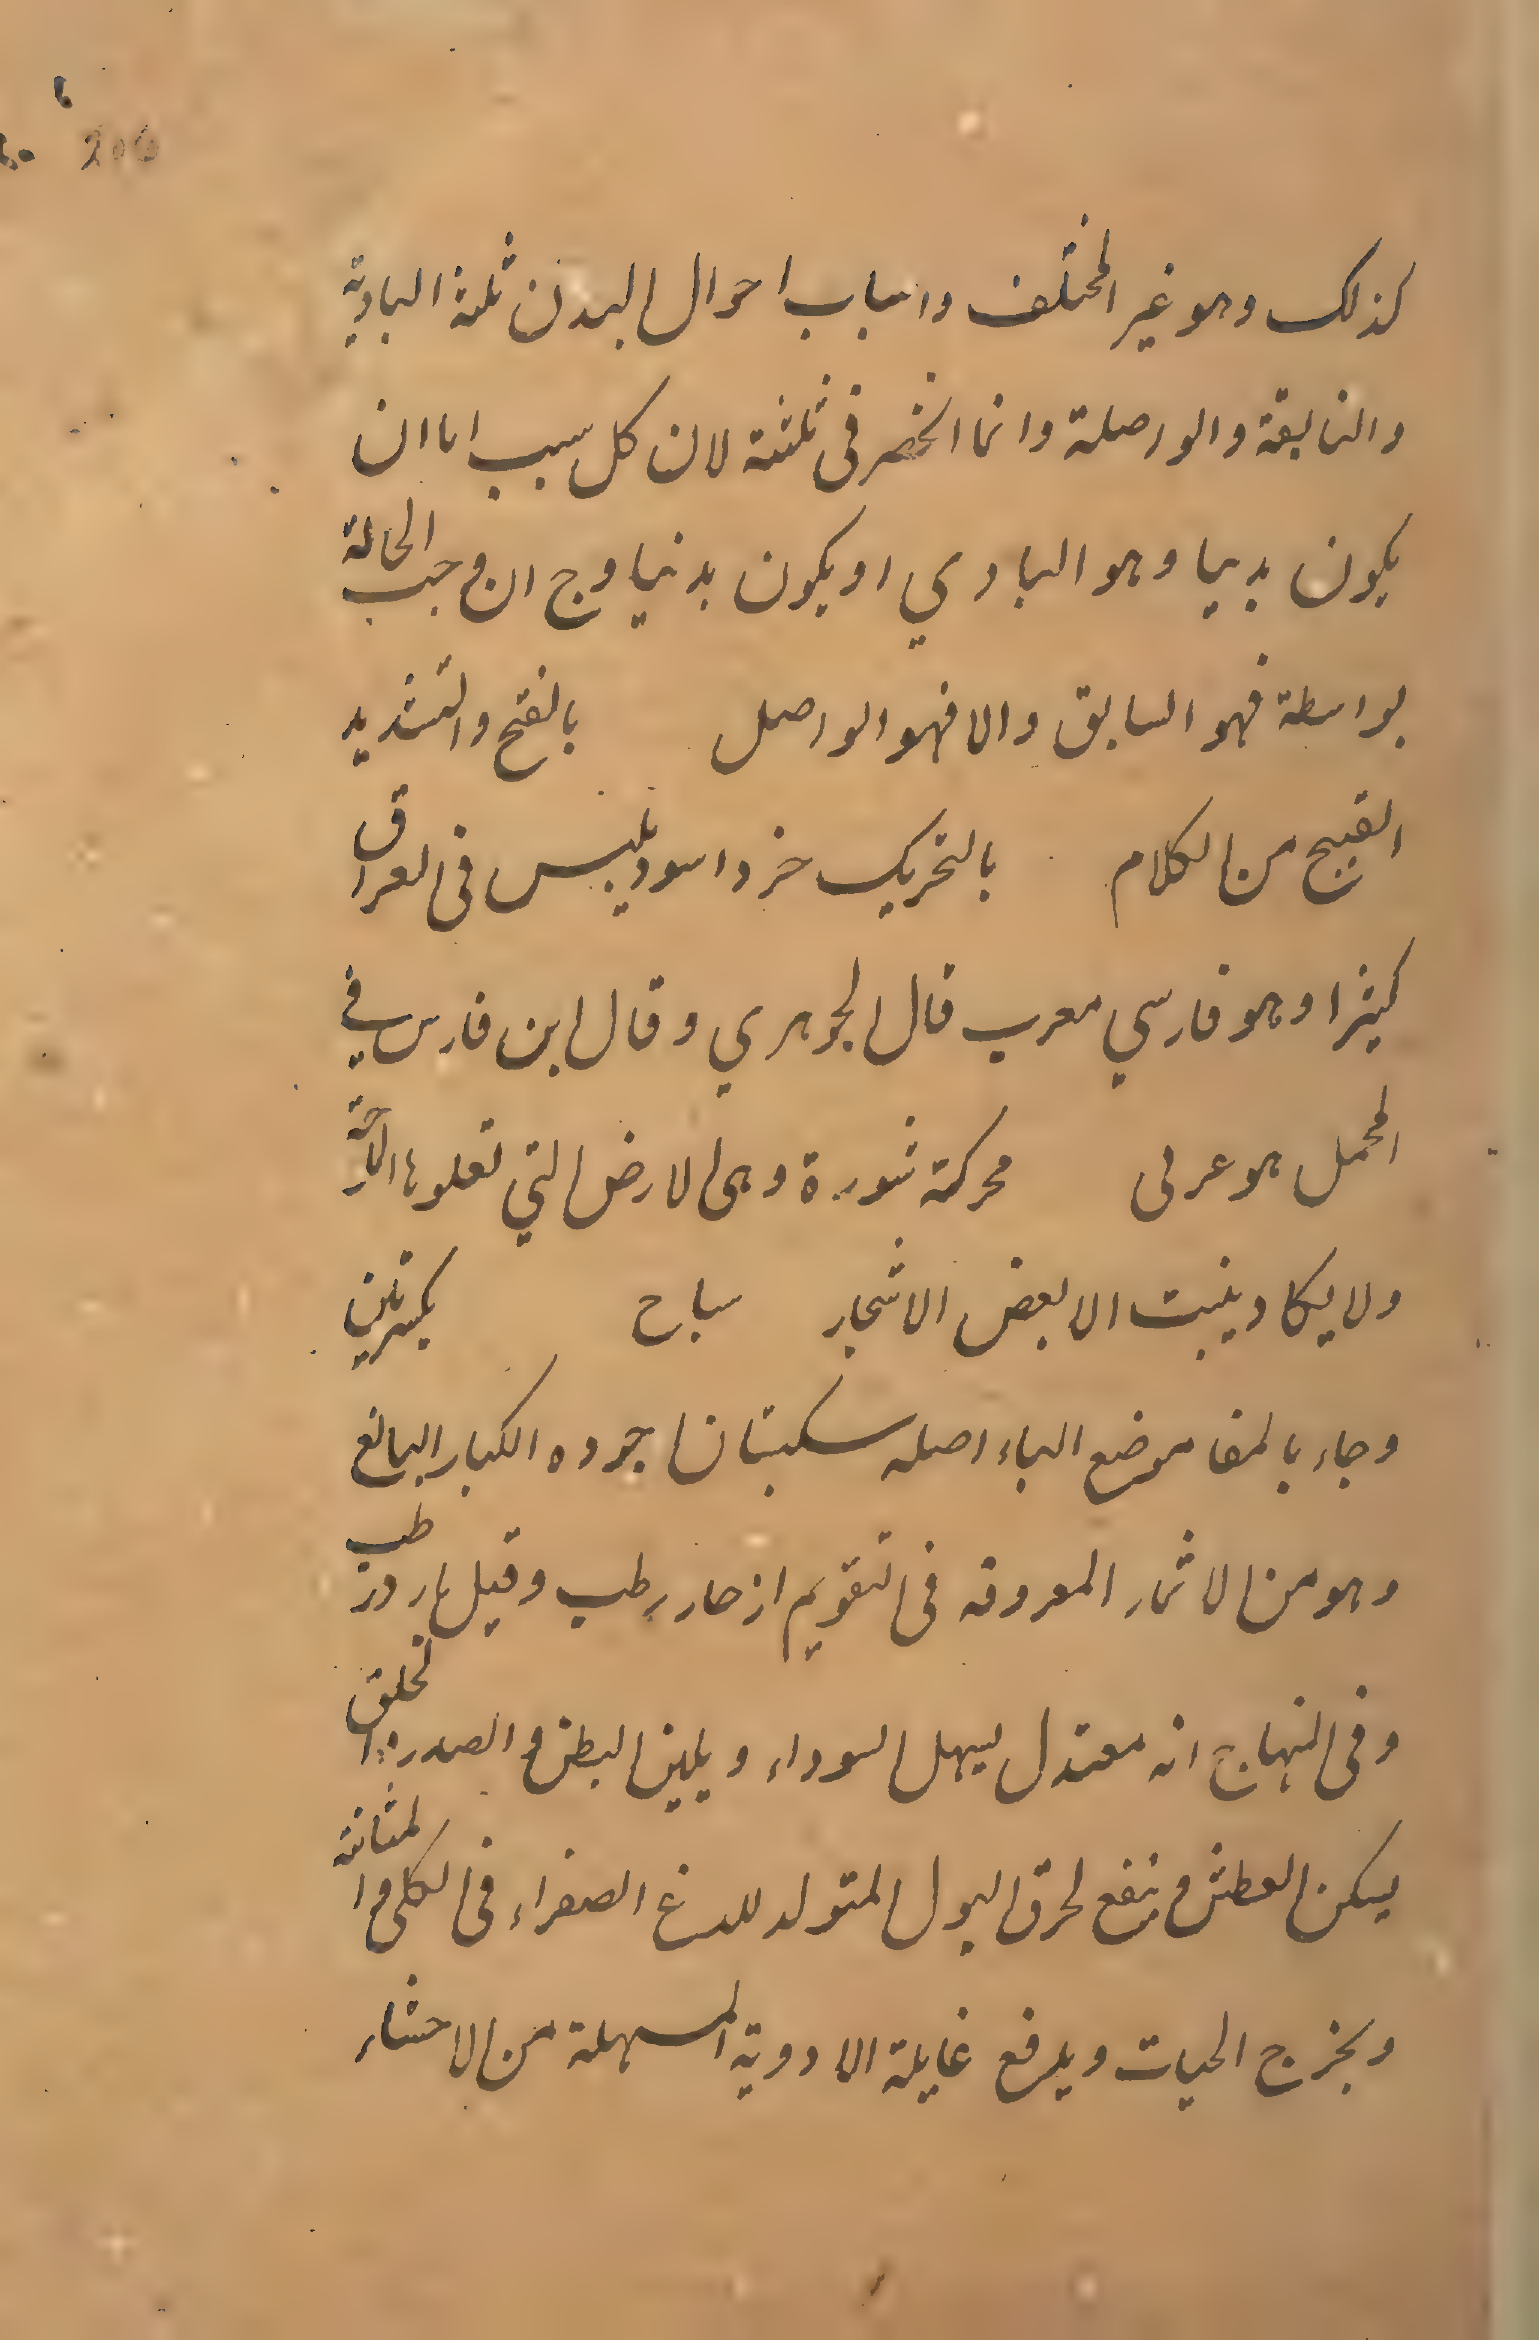 206
كذلك وهو غير المختلف واسباب احوال البدن ثلثة البادية
والنابقة والواصلة وانما انحصر فى ثلثة لان كل سبب اما ان
يكون بدييا وهو البادي او يكون بدنيا وح ان وجب الحالة
بواسطة فهو السابق والا فهو الواصل بالفتح والتشديد
القبيح من الكلام بالتحريك خرز اسود يلبس فى العراق
كثيرا وهو فارسي معرب قال الجوهري وقال ابن فارس في
المجمل هو عربى محركة شورة وهى الارض التي تعلوها
ولا يكاد ينبت الا بعض الاشجار سباح بكسرتين
وجاء بالفا موضع الباء اصله سكبتان اجوده الكبار البالغ
وهو من الاثمار المعروفه فى التقويم انه حار رطب وقيل بارد رطب
وفى المنهاج انه معتدل يسهل السوداء ويلين البطن و الصدر والحلق
يسكن العطش و ينفع لحرق البول المتولد للدغ الصفراء فى الكلى و المثانة
ويخرج الحيات ويدفع غايلة الادوية المسهلة من الاحشاء